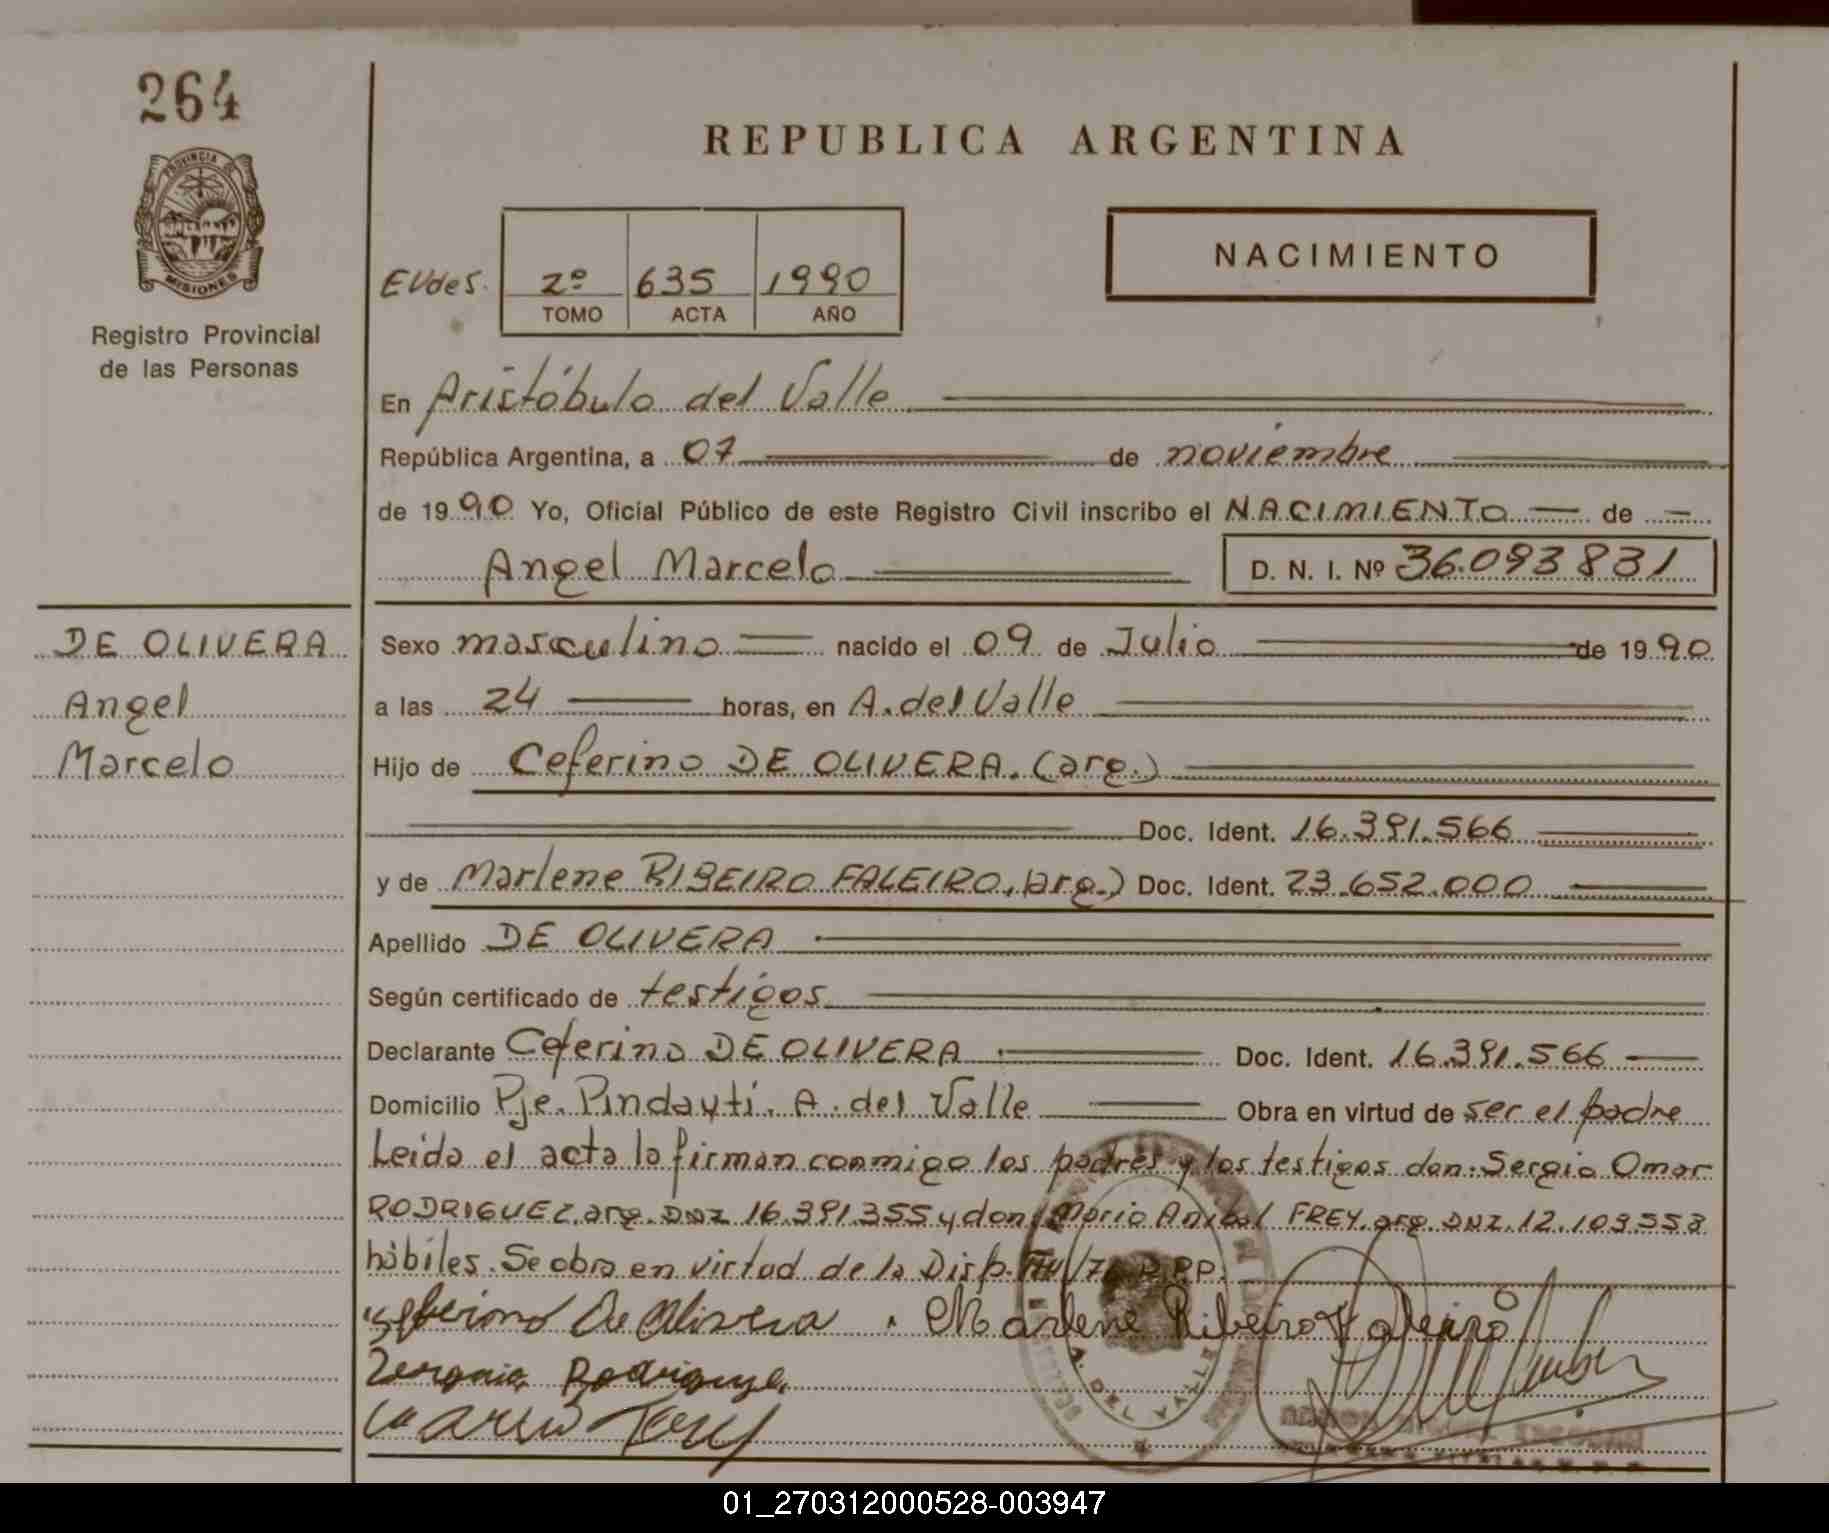 264
REPUBLICA ARGENTINA
PROVINCIA DE
MISIONES
Registro Provincial
de las Personas
NACIMIENTO
EVdes. 2º 635 1990
TOMO ACTA AÑO
En Aristóbulo del Valle
República Argentina, a 07 de noviembre
de 1990 Yo, Oficial Público de este Registro Civil inscribo el NACIMIENTO de
Angel Marcelo D. N. I. Nº 36.093831
DE OLIVERA
Angel
Marcelo
Sexo masculino nacido el 09 de Julio de 1990
a las 24 horas, en A. del Valle
Hijo de Ceferino DE OLIVERA. (arg.)
Doc. Ident. 16.391.566
y de Marlene RIBEIRO FALEIRO, (arg.) Doc. Ident. 23.652.000
Apellido DE OLIVERA
Según certificado de testigos
Declarante Ceferino DE OLIVERA Doc. Ident. 16.391.566
Domicilio Pje. Pindayti. A. del Valle Obra en virtud de ser el padre
Leida el acta la firman conmigo los padres y los testigos don: Sergio Omar
RODRIGUEZ. arg. DNI 16.391.355 y don Mario Anibal FREY. arg. DNI. 12.109553
hábiles. Se obra en virtud de la Disp. /76 R.P.P.
De Olivera . Marlene Ribeiro Faleiro
Rodriguez
A. DEL VALLE
01_270312000528-003947